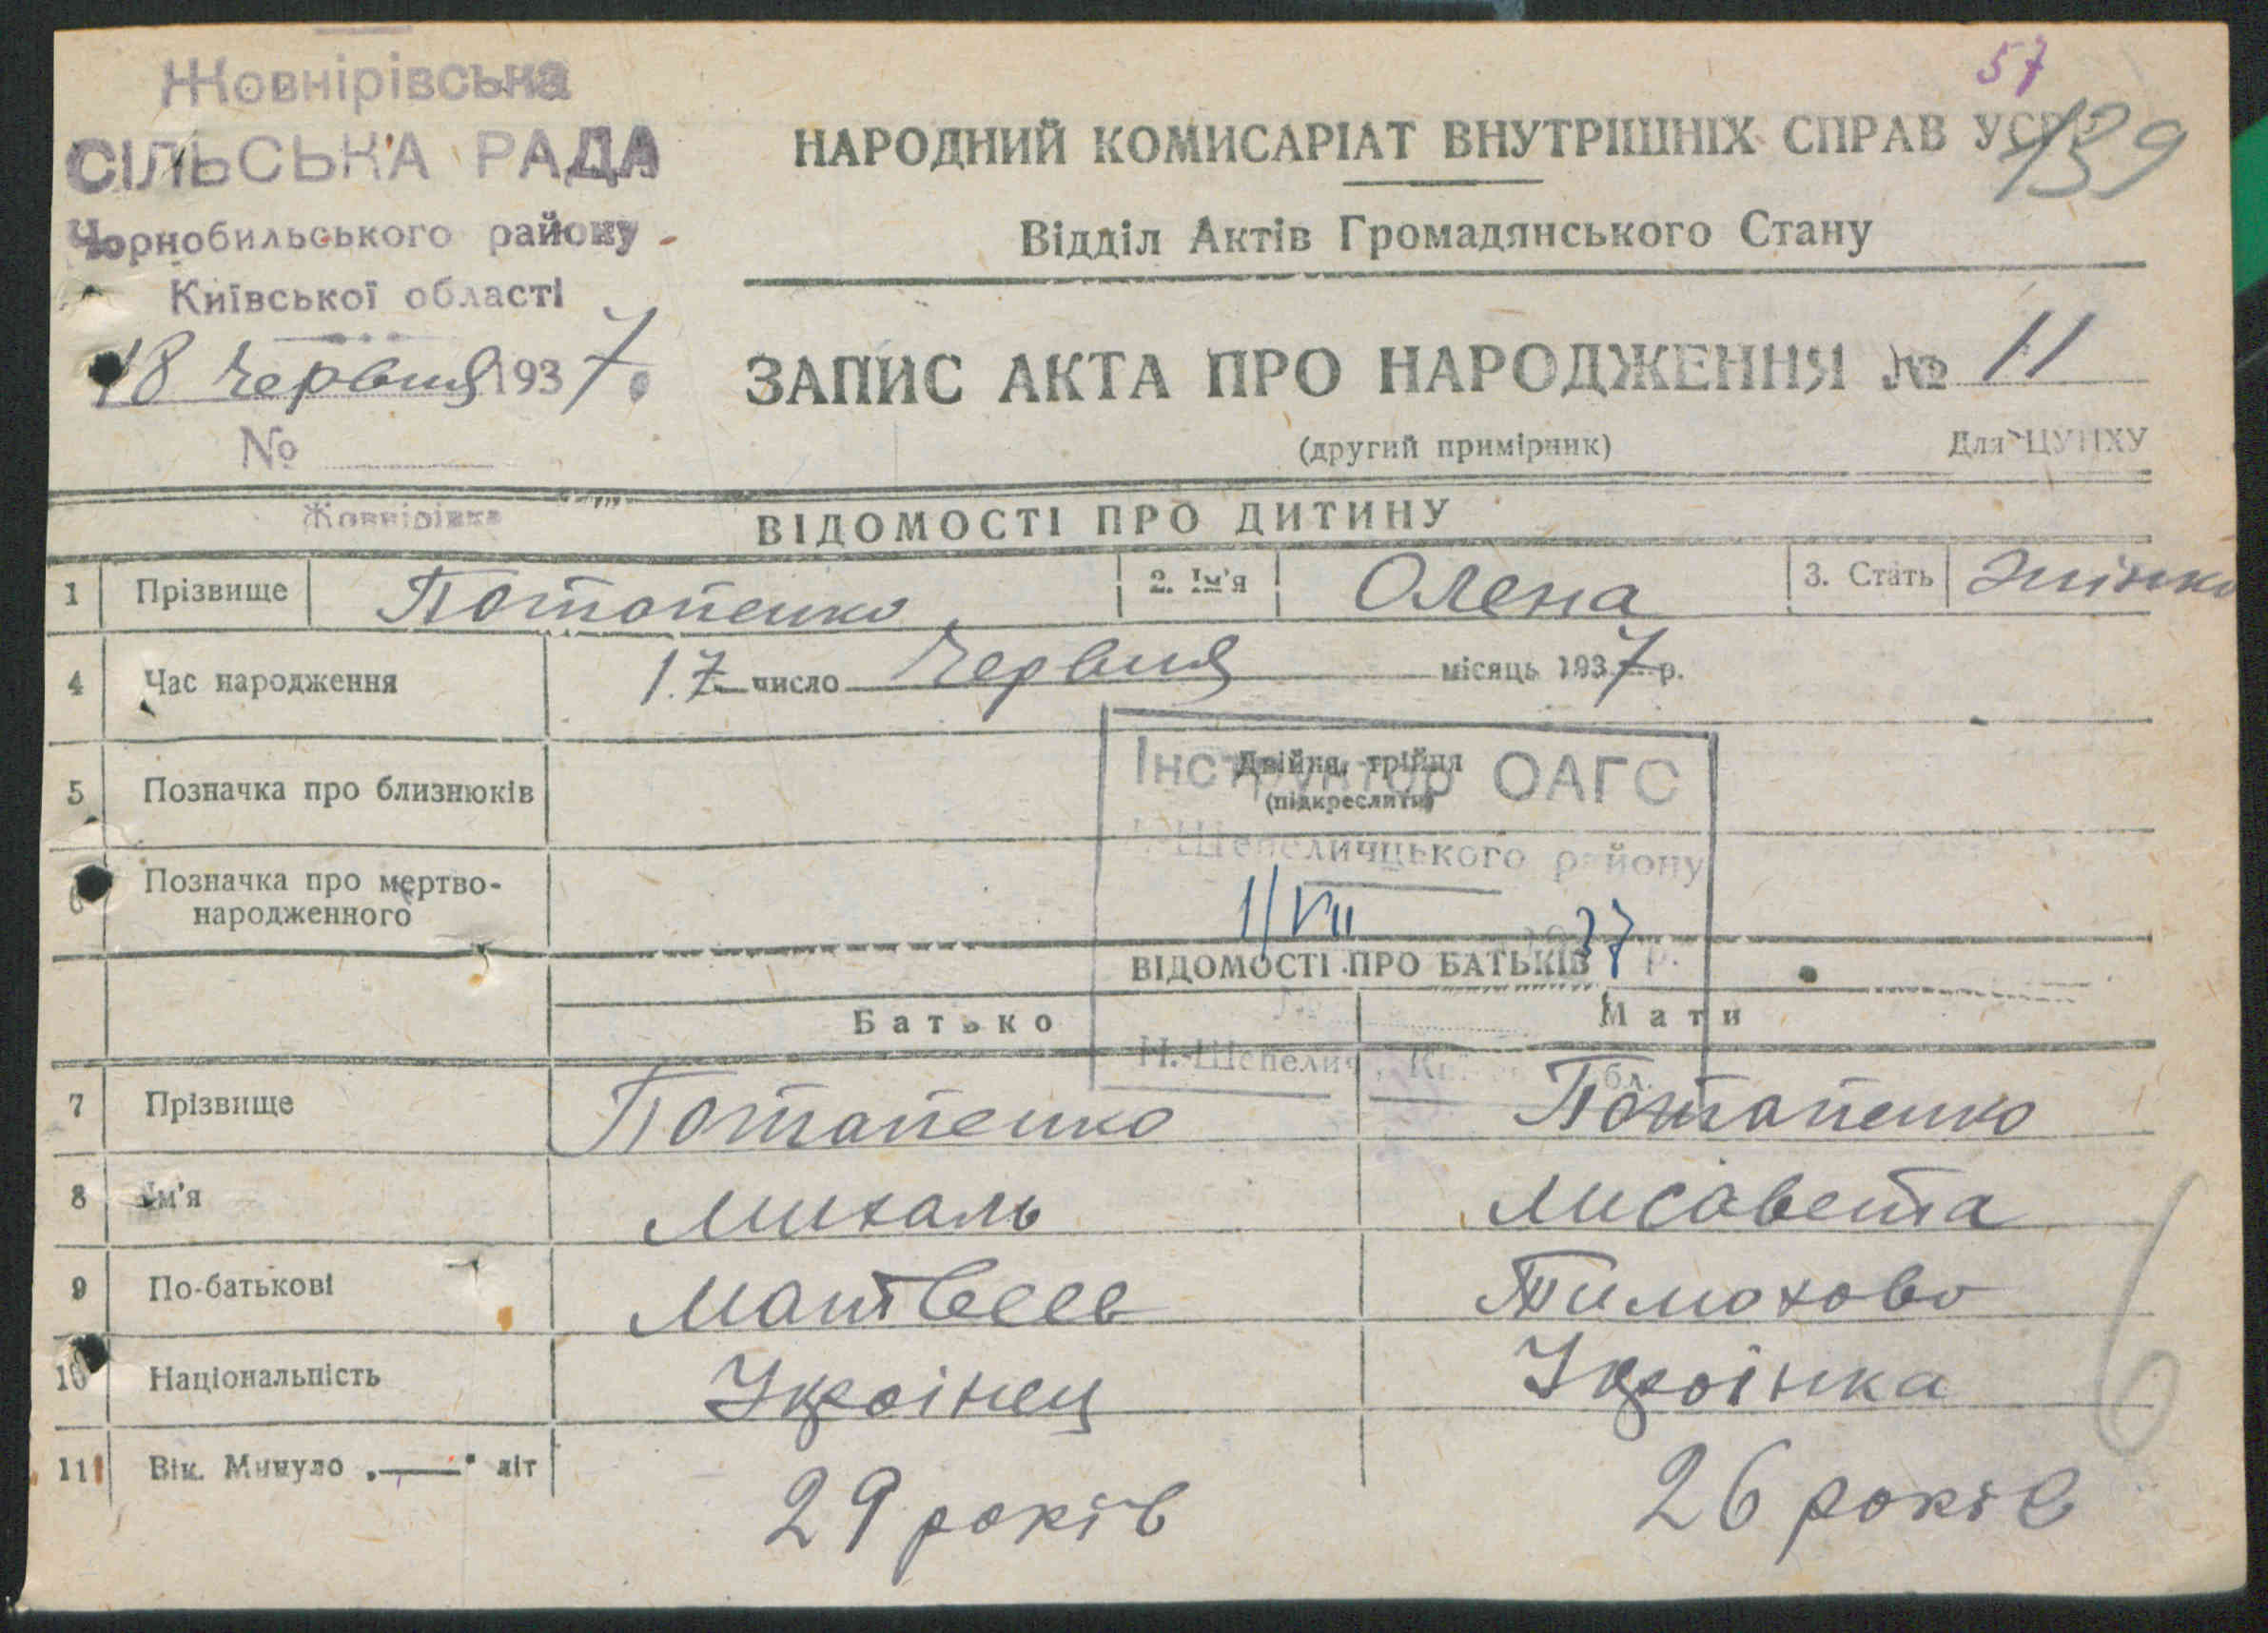 57
139
Жовнірівська
СІЛЬСЬКА РАДА
Чорнобильського району
Київської області
18 Червня 1937.
№
НАРОДНИЙ КОМИСАРІАТ ВНУТРІШНІХ СПРАВ УСРР
Відділ Актів Громадянського Стану
ЗАПИС АКТА ПРО НАРОДЖЕННЯ № 11
(другий примірник) Для ЦУНХУ
Жовнірівка
ВІДОМОСТІ ПРО ДИТИНУ
1 Прізвище Потопенко 2. Ім'я Олена 3. Стать Жінка
4 Час народження 17 число Червня місяць 1937 р.
5 Позначка про близнюків Двійня, трійня
(підкреслити)
Інструктор ОАГС
Шепеличцького району
6 Позначка про мертво-
народженного
1/VII 37 р.
ВІДОМОСТІ ПРО БАТЬКІВ
Батько Мати
Н.-Шепелич
7 Прізвище Потапенко Потапенко
8 Ім'я Михаль Лисавета
9 По-батькові Матвеев Тимохово
10 Національність Украінец Украінка
11 Вік. Минуло „—" літ 29 років 26 років
6